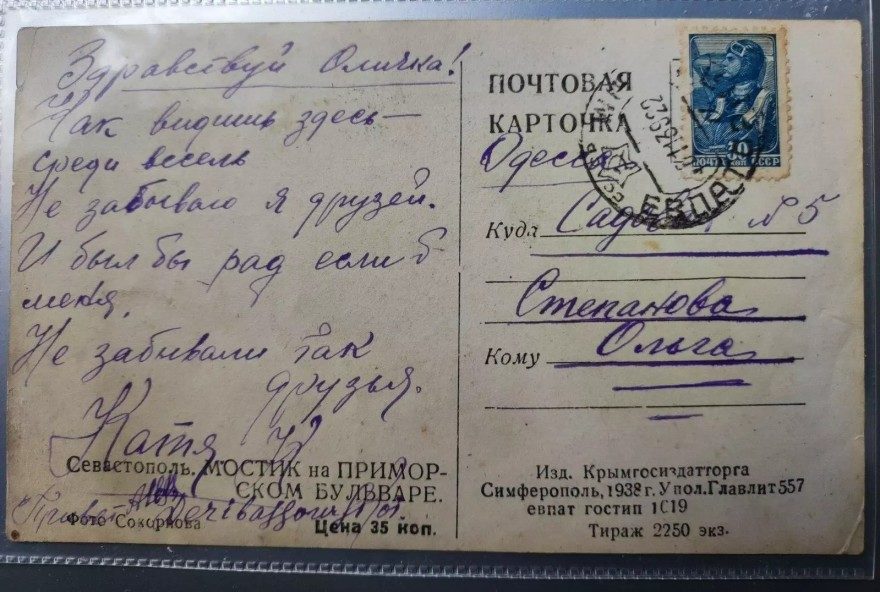 Здравствуй Оличка!
Как видишь здесь—
среди весель
Не забываю я друзей.
И был бы рад если б
меня,
Не забывали так
друзья.
Катя
Севастополь. МОСТИК на ПРИМОР-
СКОМ БУЛЬВАРЕ.
Привет
Фото Сокорнова
Цена 35 коп.
ПОЧТОВАЯ
КАРТОЧКА
Одесса
ПОЧТА 30 КОП. СССР
Куда
N 5
Степанова
Кому Ольга
Изд. Крымгосиздатторга
Симферополь, 1938 г. Упол. Главлит 557
евпат гостип 1С19
Тираж 2250 экз.